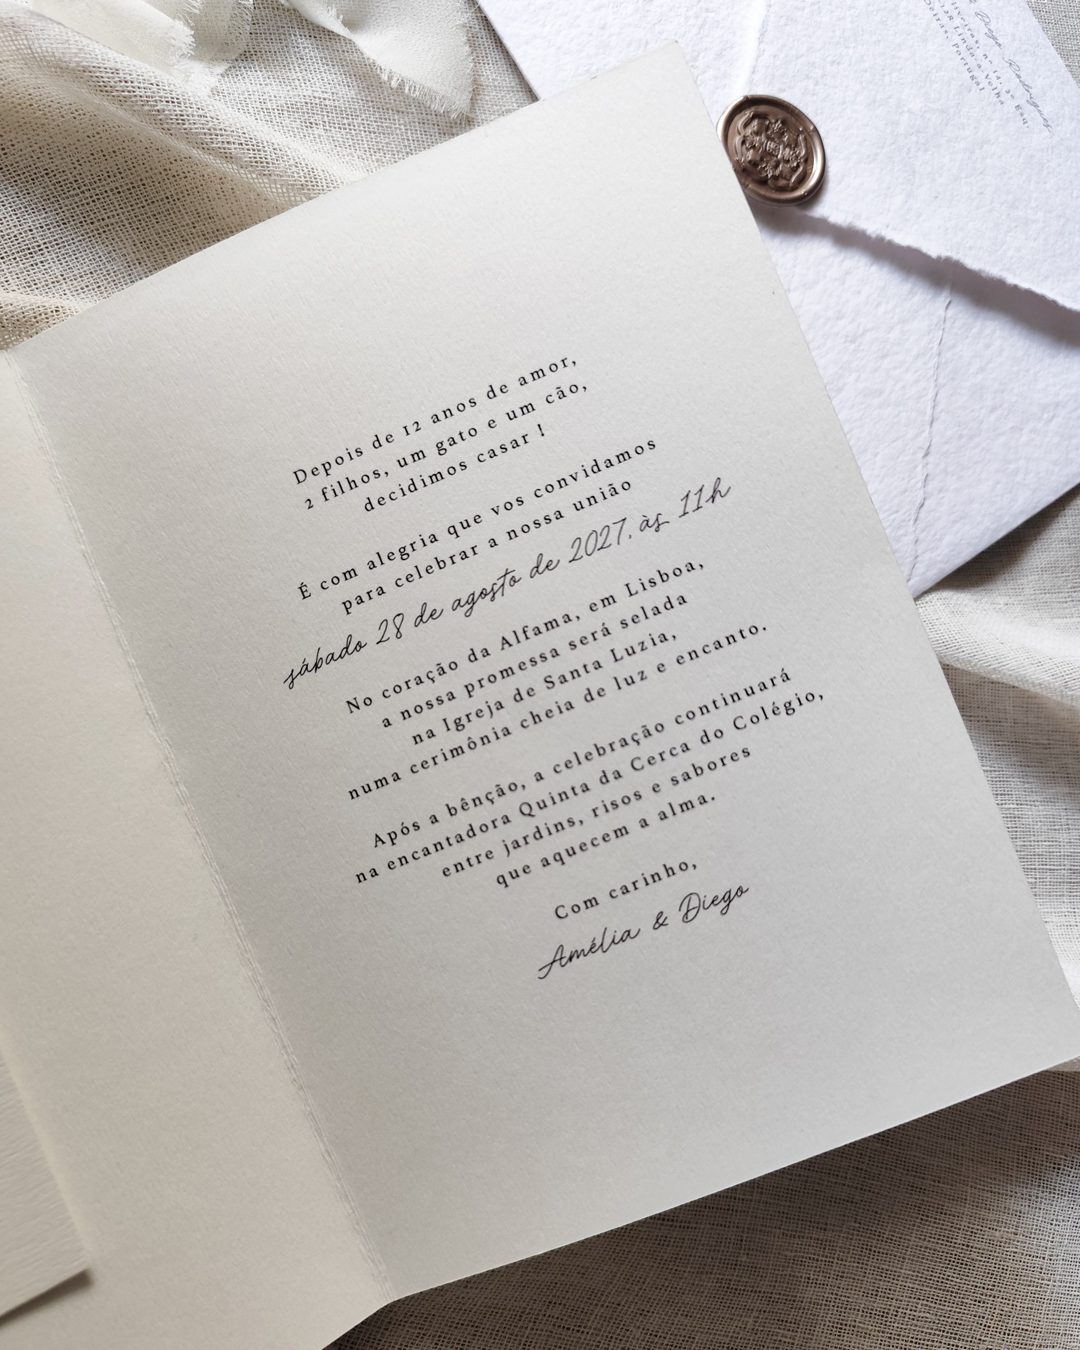 Depois de 12 anos de amor,
2 filhos, um gato e um cão,
decidimos casar !
É com alegria que vos convidamos
para celebrar a nossa união
sábado 28 de agosto de 2027, às 11h
No coração da Alfama, em Lisboa,
a nossa promessa será selada
na Igreja de Santa Luzia,
numa cerimônia cheia de luz e encanto.
Após a bênção, a celebração continuará
na encantadora Quinta da Cerca do Colégio,
entre jardins, risos e sabores
que aquecem a alma.
Com carinho,
Amélia & Diego
Rodrigues
nº 14, 3º Esq.
Linda-a-Velha
Portugal